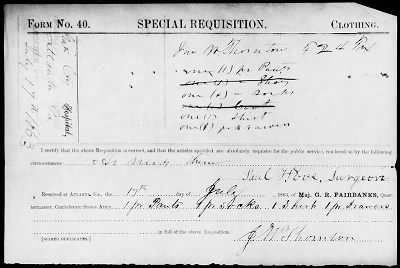 FORM NO. 40. SPECIAL REQUISITION. CLOTHING.
Jno W Thornton 52 4
one (1) pr Pants
one (1)
one (1) " socks
one (1)
one (1) Shirt
one (1) pr drawers
Hospital
July 17th 1863
I certify that the above Requisition is correct, and that the articles specified are absolutely requisite for the public service, rendered so by the following
circumstances
Surgeon
RECEIVED AT ATLANTA, GA., the 17th day of July 186 , of MAJ. G. R. FAIRBANKS, Quar-
termaster, Confederate States Army, 1 pr Pants 1 pr socks. 1 Shirt 1 pr Drawers
in full of the above Requisition.
[SIGNED DUPLICATES.] J W Thornton